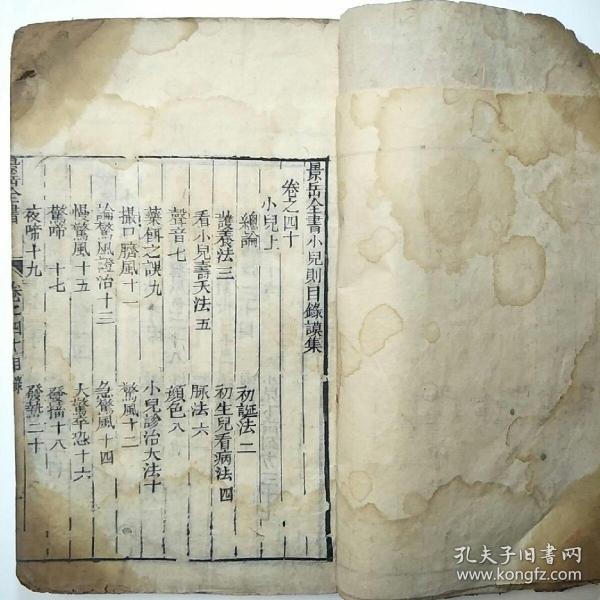 景岳全書小兒則目錄謨集
卷之四十
小兒上
總論 初誕法二
護養法三 初生兒看病法四
看小兒壽夭法五 脉法六
聲音七 顔色八
藥餌之誤九 小兒診治大法十
撮口臍風十一 驚風十二
論驚風證治十三 急驚風十四
慢驚風十五 大驚卒恐十六
驚啼十七 發搐十八
夜啼十九 發熱二十
景岳全書 卷之四十目錄
孔夫子旧書网
www.kongfz.com